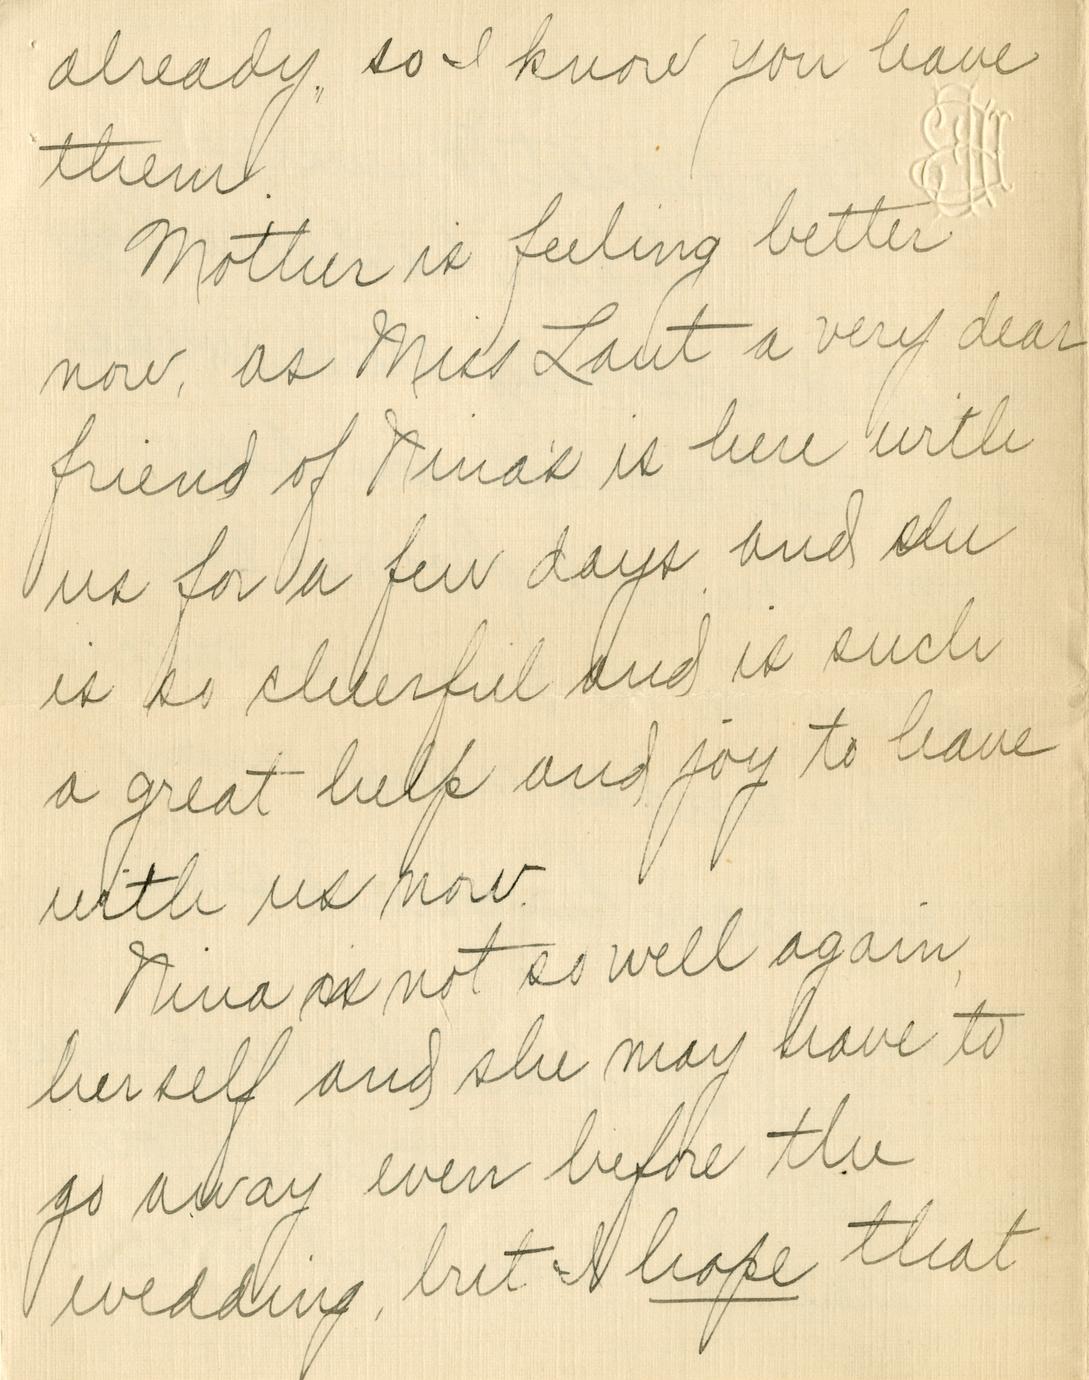 already, so I know you have
them.
Mother is feeling better
now, as Miss Laut a very dear
friend of Nina's is here with
us for a few days and she
is so cheerful and is such
a great help and joy to have
with us now.
Nina is not so well again,
herself and she may have to
go away even before the
wedding, but I hope that